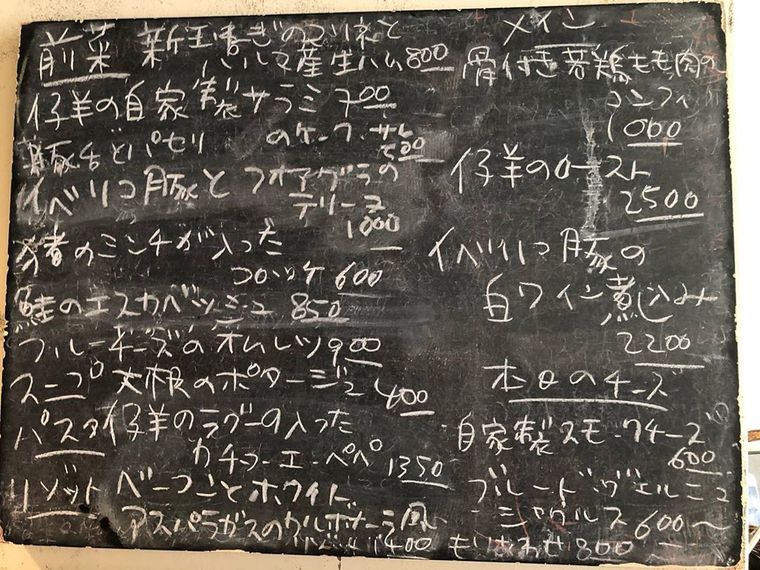 前菜 新玉ねぎのマリネと
パルマ産生ハム 800
仔羊の自家製サラミ 700
豚舌とパセリのケークサレ
500
イベリコ豚とフォアグラの
テリーヌ
1000
猪のミンチが入った
コロッケ 600
鮭のエスカベッシュ 850
ブルーチーズのオムレツ 900
スープ 大根のポタージュ 400
パスタ 仔羊のラグーの入った
カチョーエペペ 1350
リゾット ベーコンとホワイト
アスパラガスのカルボナーラ風
1400
メイン
骨付き若鶏もも肉の
コンフィ
1000
仔羊のロースト
2500
イベリコ豚の
白ワイン煮込み
2200
本日のチーズ
自家製スモークチーズ
600
ブルードヴェルニュ
600〜
もりあわせ 800